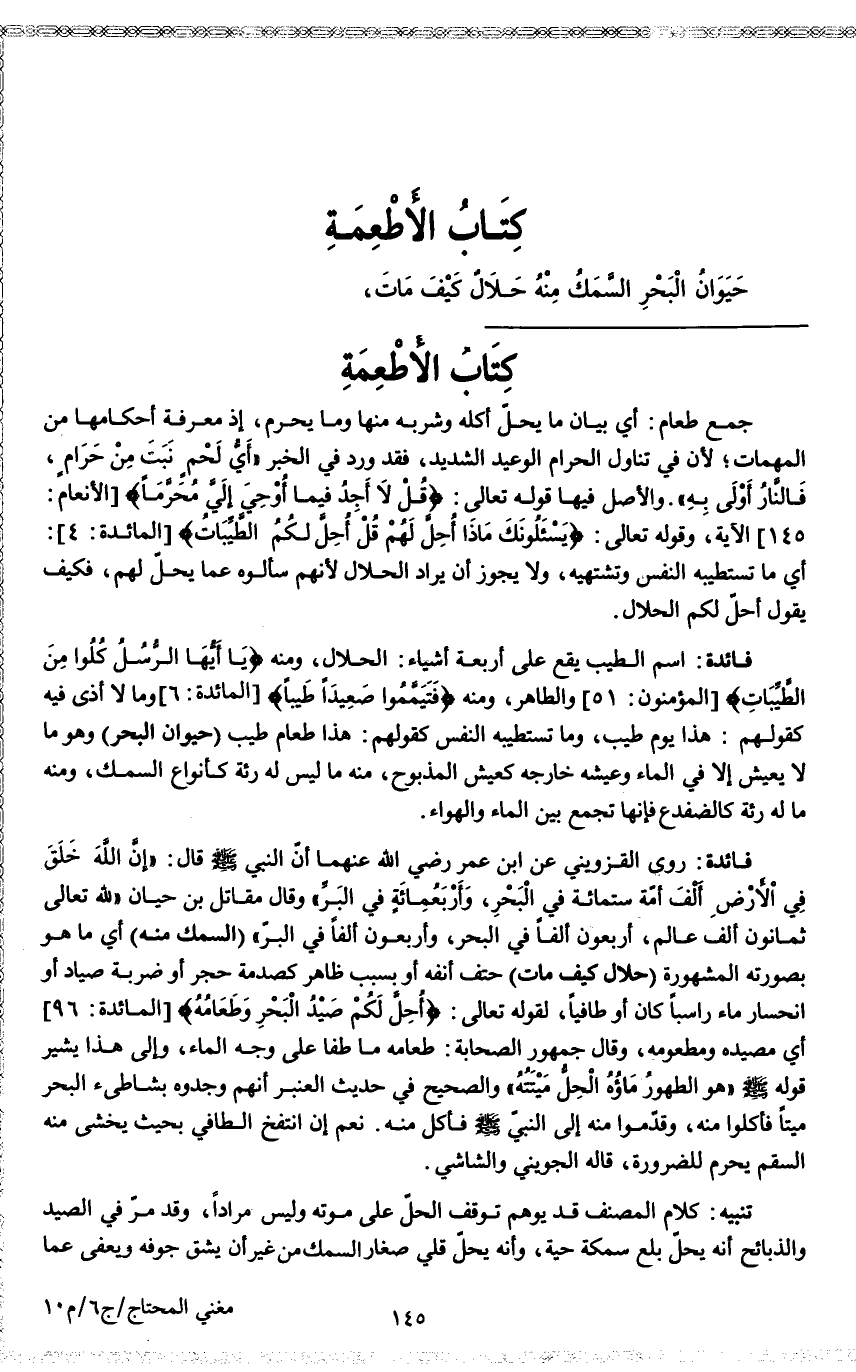 كِتَـابُ الأَطْعِمَـةِ
حَيَوَانُ الْبَحْرِ السَّمَكُ مِنْهُ حَـلَالٌ كَيْفَ مَاتَ،
كِتَابُ الأَطْعِمَةِ
جمـع طعام: أي بيـان ما يحـلّ أكله وشربـه منها ومـا يحرم، إذ معـرفـة أحكـامهـا من
المهمات؛ لأن في تناول الحرام الوعيد الشديد، فقد ورد في الخبر «أَيُّ لَحْمٍ نَبَتَ مِنْ حَرَامٍ،
فَـالنَّارُ أَوْلَى بِـهِ». والأصل فيهـا قولـه تعالى: ﴿قُـلْ لاَ أَجِدُ فيمـا أُوْحِيَ إِلَيَّ مُحَرَّمَـاً﴾ [الأنعام:
١٤٥] الآية، وقوله تعالى: ﴿يَسْئَلُونَكَ مَاذَا أُحِلَّ لَهُمْ قُلْ أُحِلَّ لَـكُمُ الطَّيِّبَاتُ﴾ [المائـدة: ٤]:
أي ما تستطيبه النفس وتشتهيه، ولا يجوز أن يراد الحـلال لأنهم سألـوه عما يحـلّ لهم، فكيف
يقول أحلّ لكم الحلال.
فـائدة: اسم الـطيب يقع على أربعـة أشياء: الحـلال، ومنه ﴿يَـا أَيُّهَـا الـرُّسُـلُ كُلُوا مِنَ
الطَّيِّبَاتِ﴾ [المؤمنون: ٥١] والطاهر، ومنه ﴿فَتَيَمَّمُوا صَعِيدَاً طَيباً﴾ [المائدة: ٦] وما لا أذى فيه
كقولـهم : هذا يوم طيب، وما تستطيبه النفس كقولهم: هذا طعام طيب (حيوان البحر) وهو ما
لا يعيش إلا في الماء وعيشه خارجه كعيش المذبوح، منه ما ليس له رئة كـأنواع السمـك، ومنه
ما له رئة كالضفدع فإنها تجمع بين الماء والهواء.
فـائدة: روى القـزويني عن ابن عمر رضي الله عنهمـا أنّ النبي ﷺ قال: «إنَّ اللَّهَ خَلَقَ
فِي الْأَرْضِ أَلْفَ أمّة ستمائـة في الْبَحْرِ، وَأَرْبَعُمِـائَةٍ في البَـرِّ» وقال مقـاتل بن حيـان «لله تعالى
ثمـانون ألف عـالم، أربعون ألفـاً في البحر، وأربعـون ألفاً في البـرّ» (السمك منـه) أي ما هـو
بصورته المشهورة (حلال كيف مات) حتف أنفه أو بسبب ظاهر كصدمة حجر أو ضربـة صياد أو
انحسار ماء راسباً كان أو طافياً، لقوله تعالى: ﴿أُحِلَّ لَكُمْ صَيْدُ الْبَحْرِ وَطَعَامُهُ﴾ [المـائدة: ٩٦]
أي مصيده ومطعومه، وقال جمهور الصحابة: طعامه مـا طفا على وجـه الماء، وإلى هـذا يشير
قوله ﷺ «هو الطهورُ مَاؤُهُ الْحِلُّ مَيْتَتُهُ» والصحيح في حديث العنبـر أنهم وجدوه بشـاطىء البحر
ميتاً فأكلوا منه، وقدّمـوا منه إلى النبيّ ﷺ فـأكل منـه. نعم إن انتفخ الـطافي بحيث يخشى منه
السقم يحرم للضرورة، قاله الجويني والشاشي.
تنبيه: كلام المصنف قـد يوهم تـوقف الحلّ على مـوته وليس مراداً، وقد مـرّ في الصيد
والذبائح أنه يحلّ بلع سمكة حية، وأنه يحلّ قلي صغار السمك من غير أن يشق جوفه ويعفى عما
١٤٥
مغني المحتاج/ج٦/م١٠